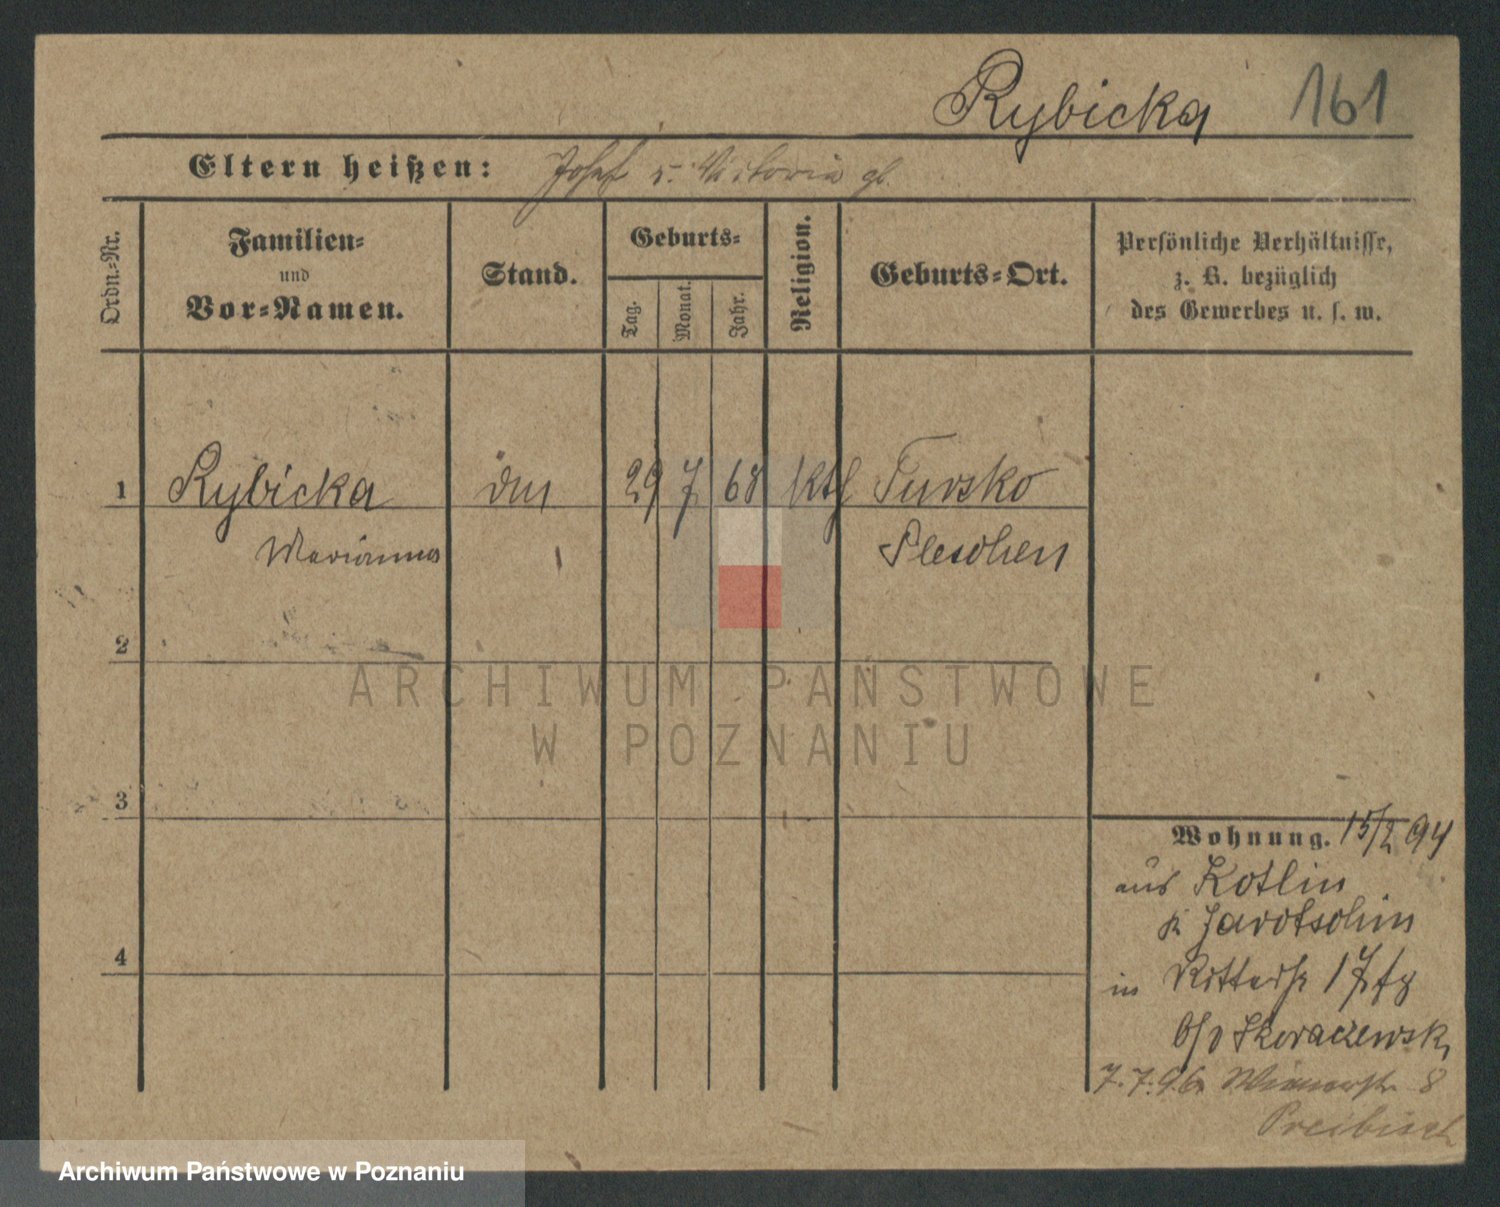 Rybicka 161
Eltern heißen: Josef u. Victoria
Ordn.-Nr.
Familien-
und
Vor-Namen.
Stand.
Geburts-
Tag.
Monat.
Jahr.
Religion.
Geburts-Ort.
Persönliche Verhältnisse,
z. B. bezüglich
des Gewerbes u. s. w.
1 Rybicka 29 7 68 ktl Tursko
Marianna Pleschen
2
3
4
Wohnung. 15/2 94
aus Kotlin
Jarotschin
in Ritterstr 17
Skoraczewski
7.7.96. 8
Preibisch
ARCHIWUM PAŃSTWOWE
W POZNANIU
Archiwum Państwowe w Poznaniu